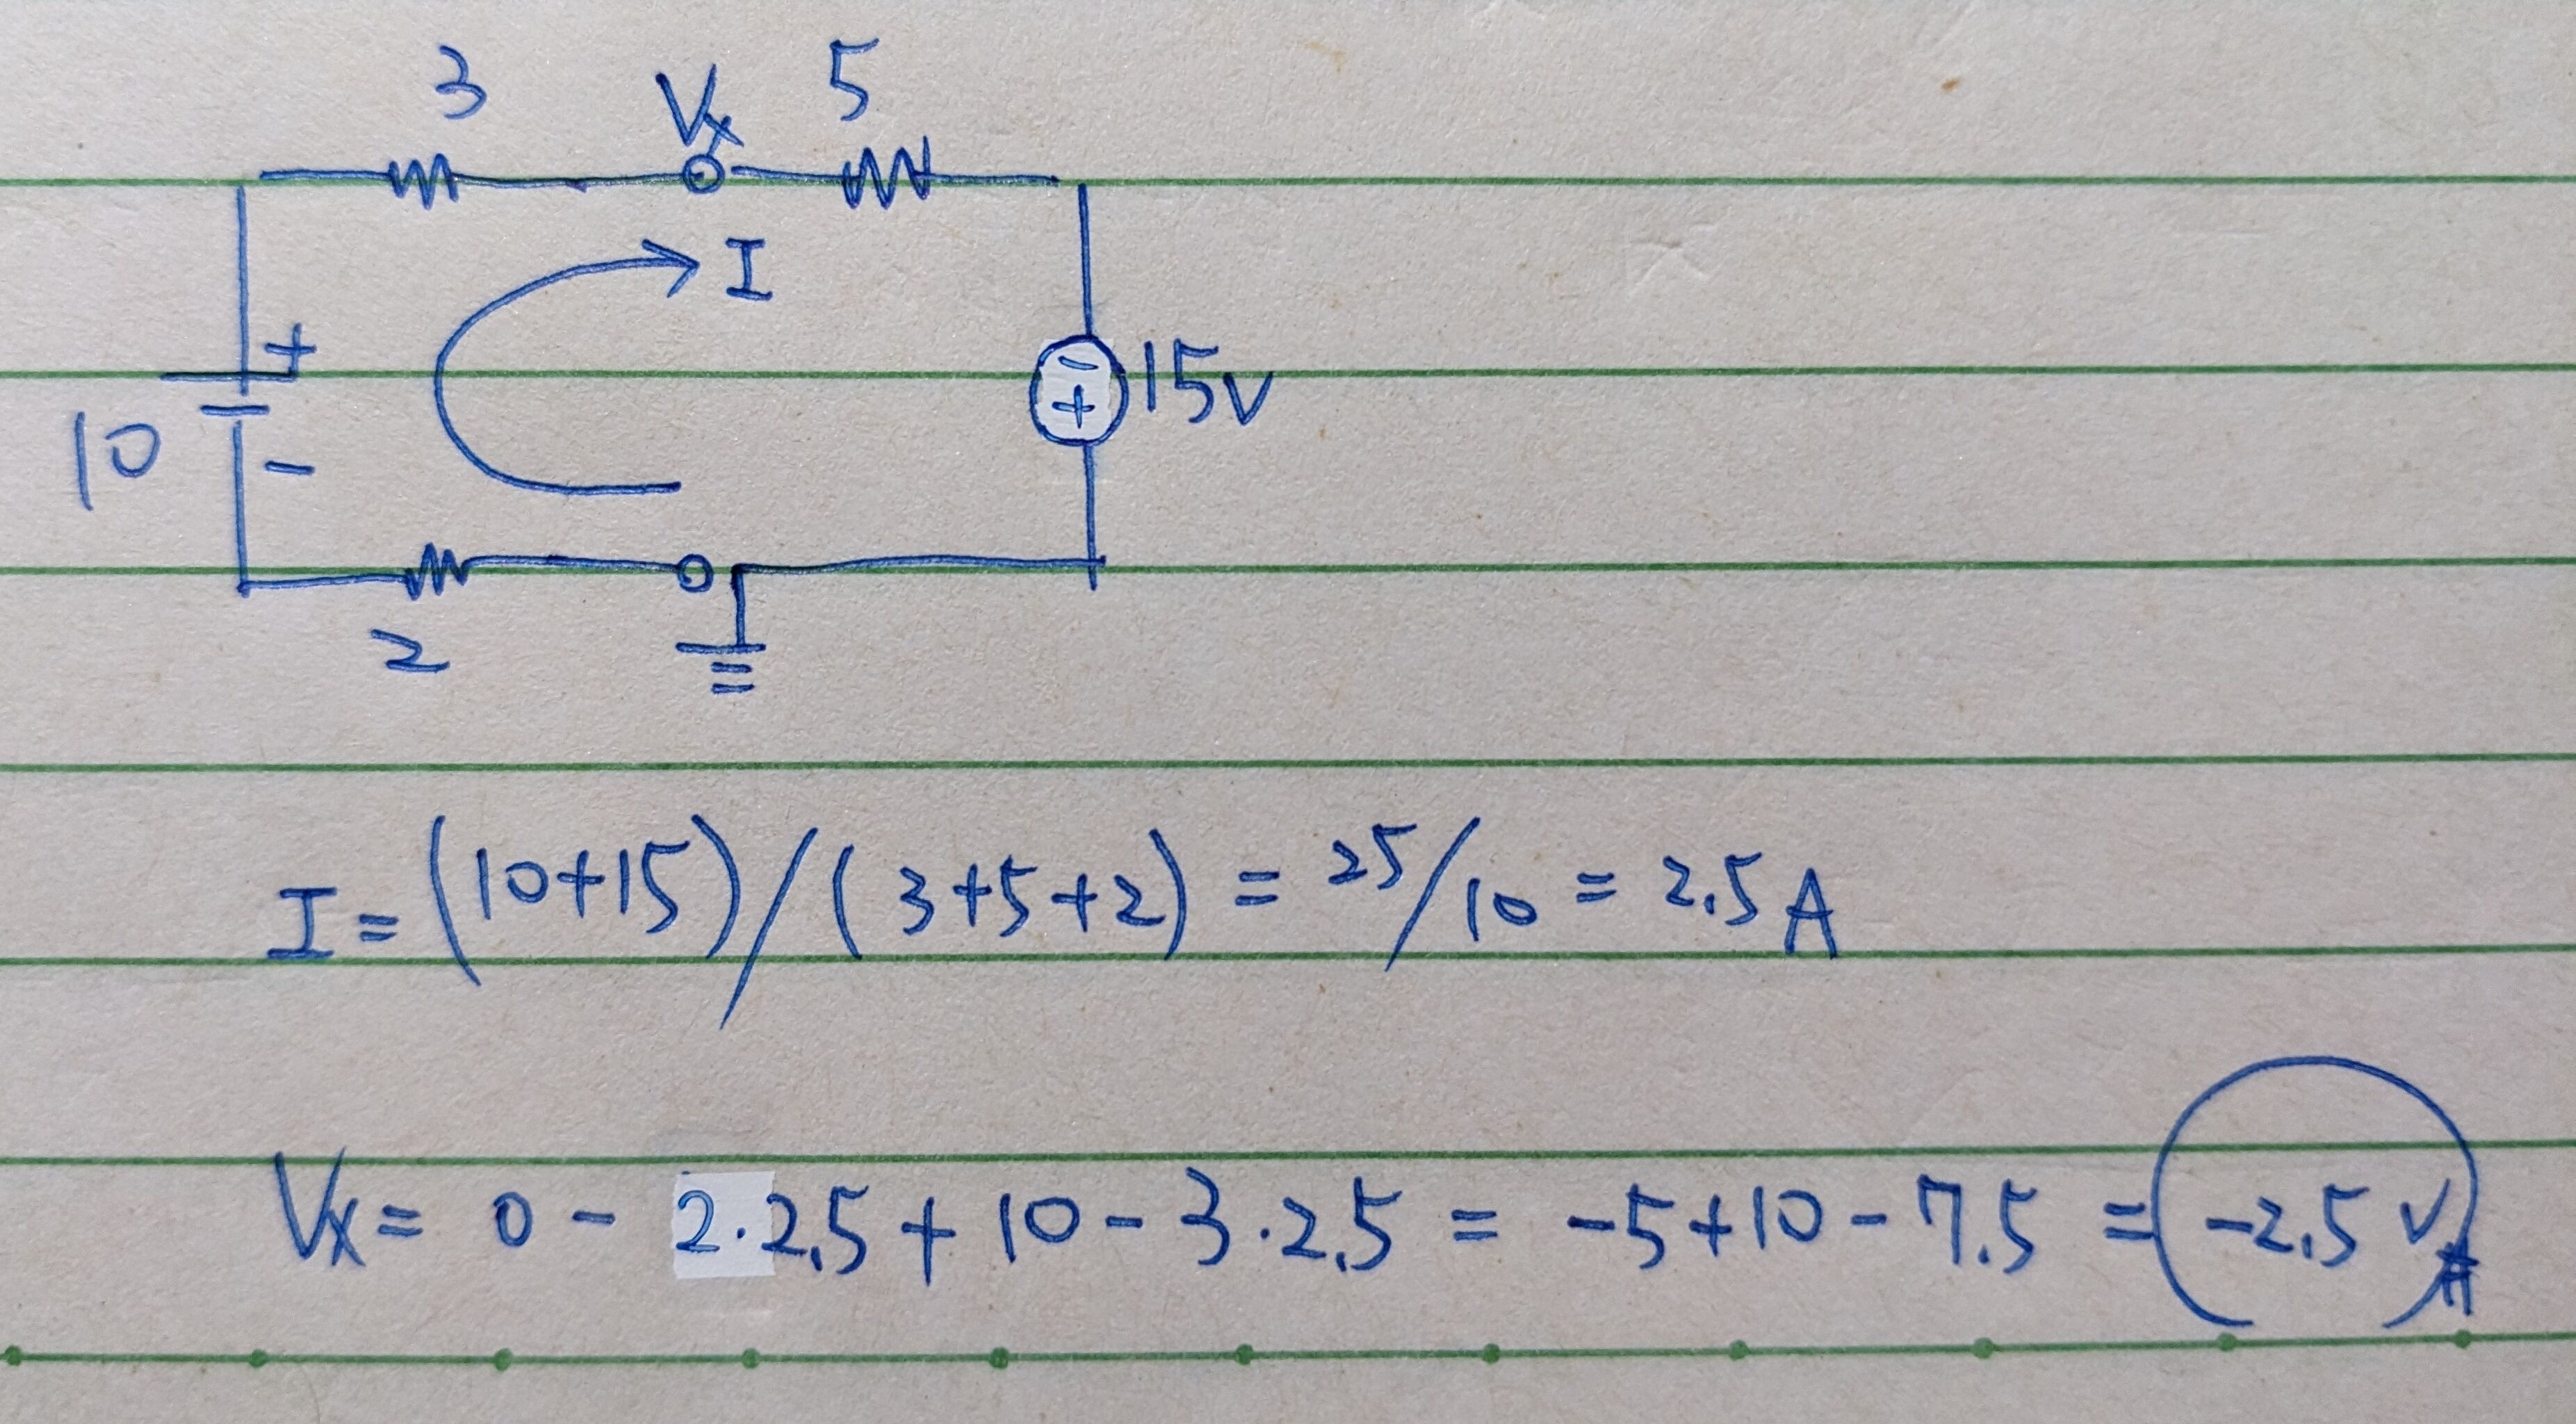 3 Vx 5
I
+
- +
15v
10
-
2
I = (10+15)/(3+5+2) = 25/10 = 2.5 A
Vx = 0 - 2·2.5 + 10 - 3·2.5 = -5+10-7.5 = -2.5 V